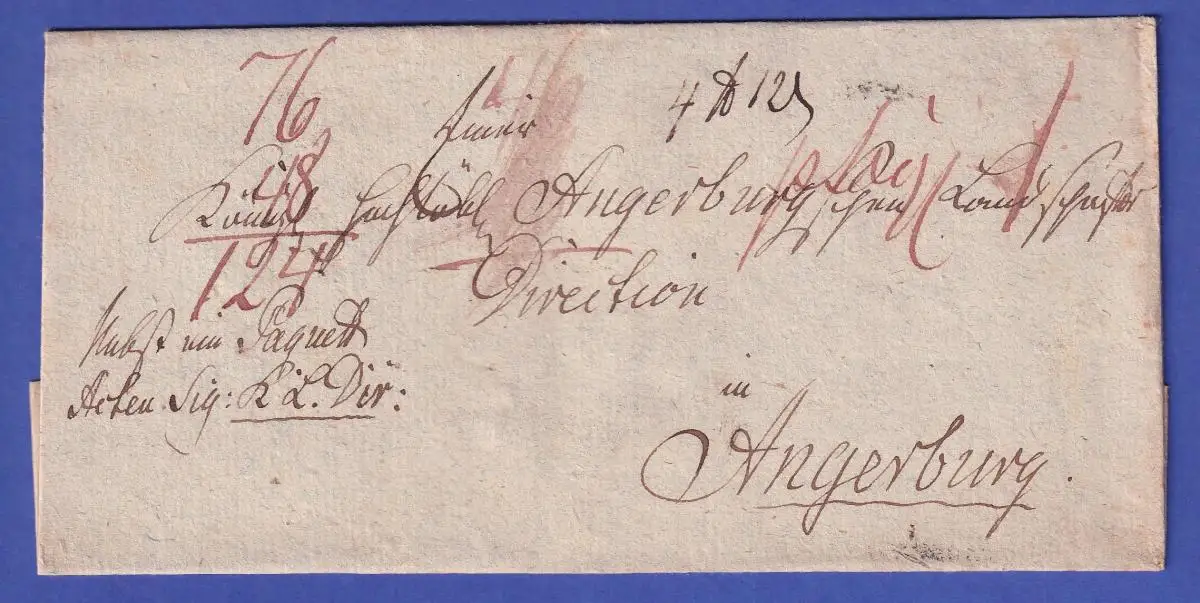 76
Einer
4 ℔ 12
48
Königl Hochlöbl Angerburgschen Landschafts
124
Direction
Nebst ein Paquett
Acten Sig: K L. Dir:
in
Angerburg.